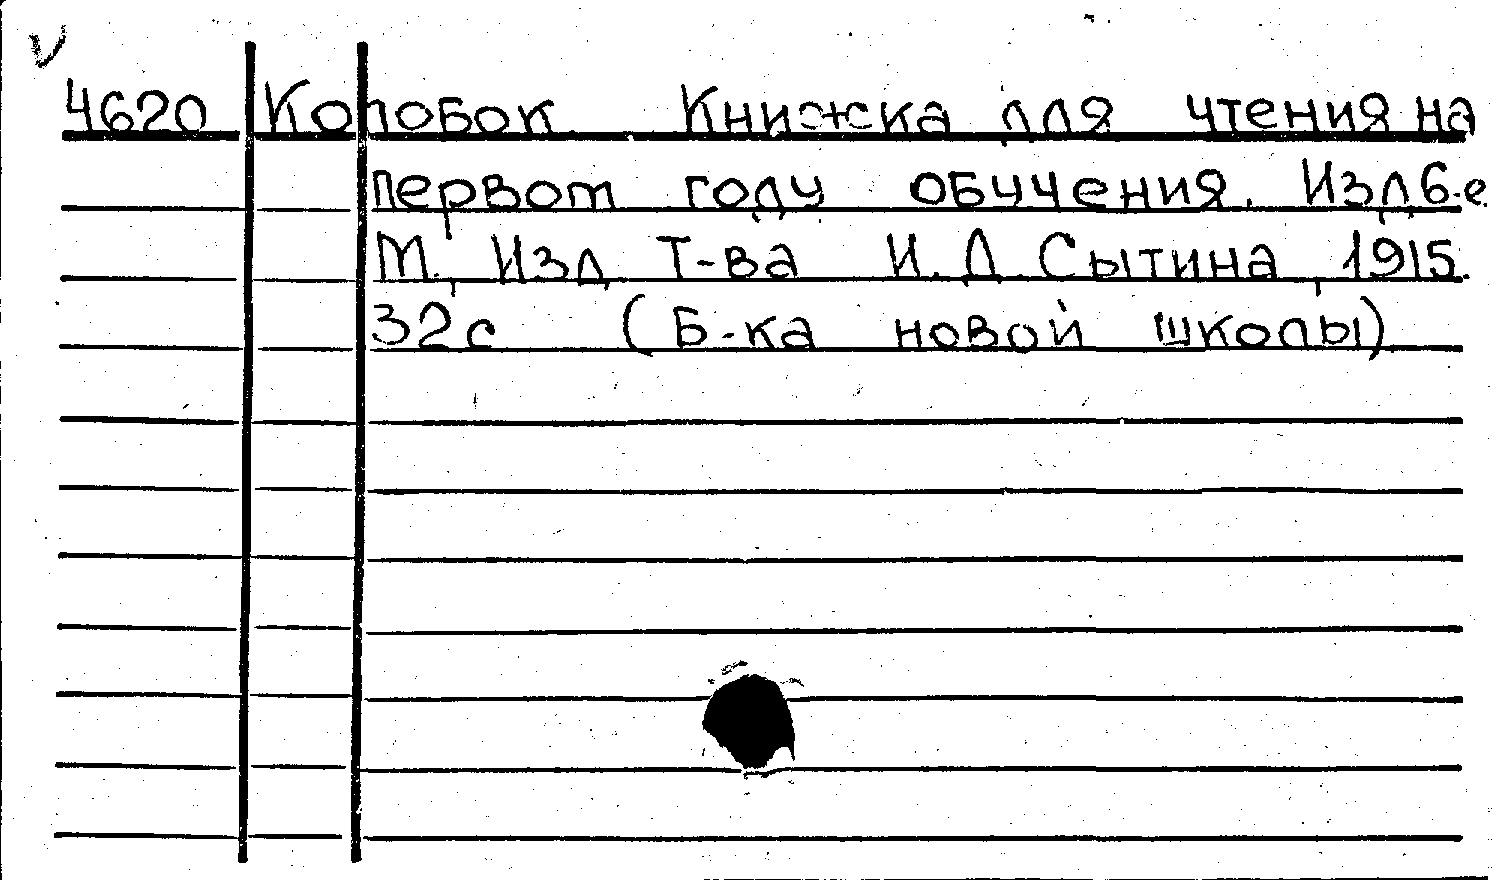 4620 Колобок Книжка для чтения на
первом году обучения. Изд 6-е
М., Изд. Т-ва И. Д. Сытина, 1915.
32с (Б-ка новой школы)